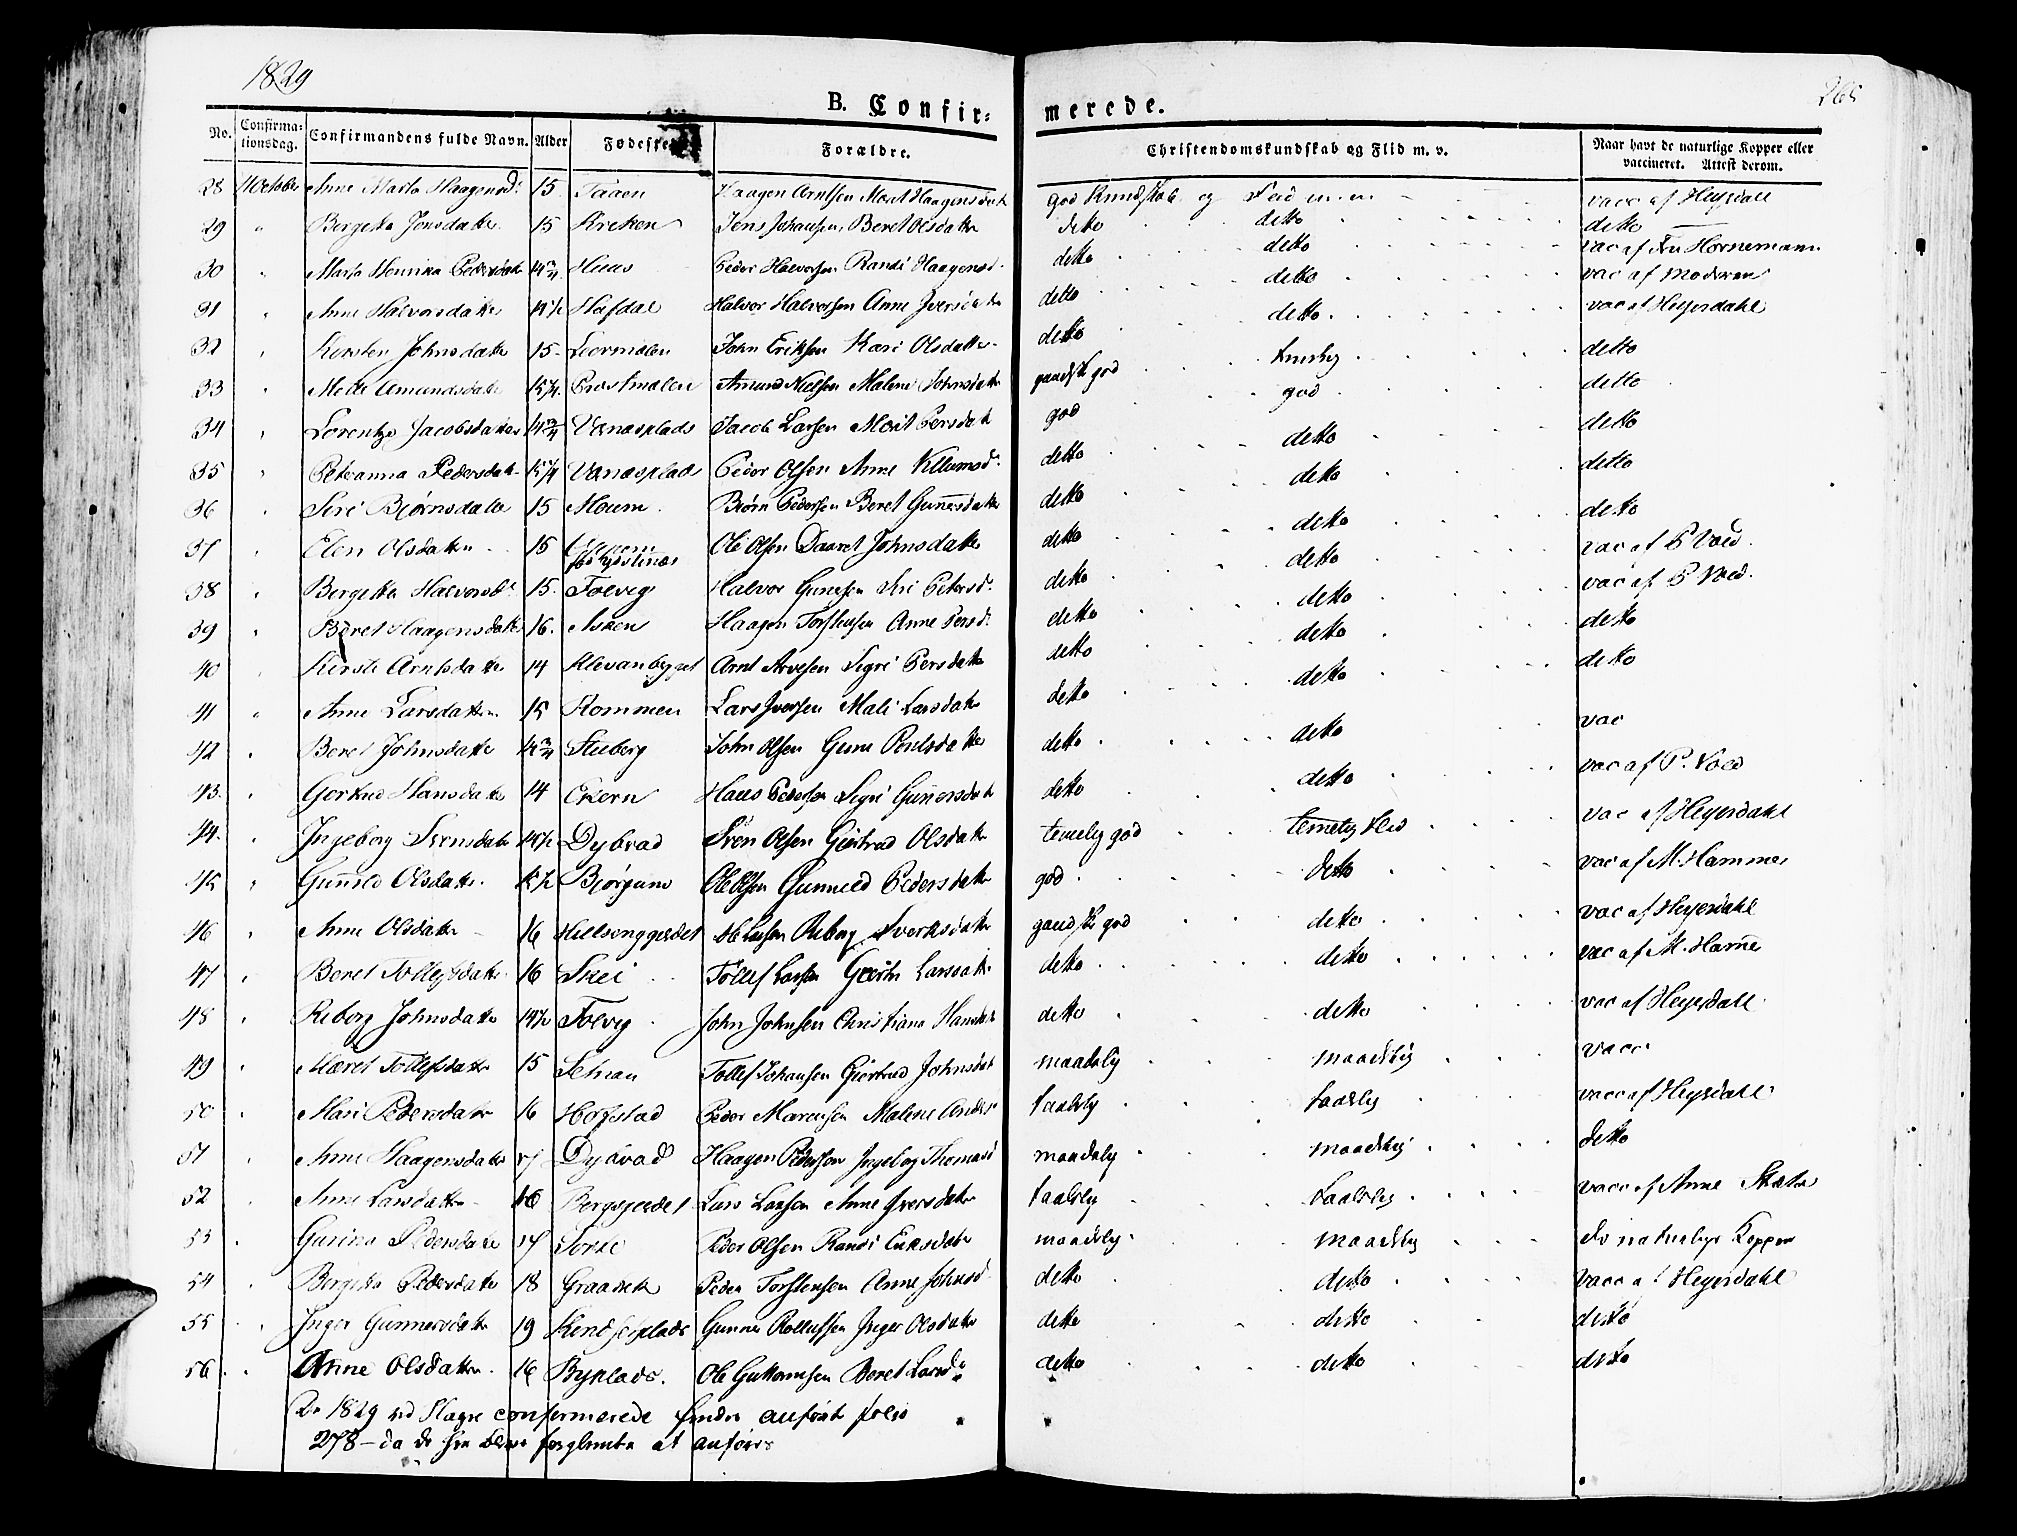 1829
265
B. Confir- merede.
No. Confirma-tionsdag. Confirmandens fulde Navn. Alder Fødested Forældre. Christendomskundskab og Flid m. v. Naar havt de naturlige Kopper eller vaccineret. Attest derom.
28 11 October Anne Marta Haagensd. 15 Haagen Arntsen Marit Haagensdat god Kundskab og vacc af Heyerdahl
29 " Bergitta Jonsdatter 15 Kreken Jens Johansen Beret Olsdatter detto detto detto
30 " Maria Henrika Pedersdatter 14 3/4 Huus Peder Halvorsen Randi Haagensd. detto detto vac af Fru Hornemann
31 " Anne Halvorsdatter 15 1/2 Hafdal Halvor Halvorsen Anne Iversdatter detto detto vac af Moderen
32 " Kersten Johnsdatter 15 Leermælen John Eriksen Kari Olsdatter detto detto vac af Heyerdahl
33 " Mette Amundsdatter 15 1/4 Prestmælen Amund Nielsen Malene Johnsdatter gandske god detto
34 " Lorentze Jacobsdatter 14 3/4 Vanæsplads Jacob Larsen Marit Persdatter god god detto
35 " Peteranna Pedersdatter 15 1/4 Vanæsplads Peder Olsen Anne detto detto detto
36 " Siri Bjørnsdatter 15 Moum Biørn Pedersen Beret Gunnersdatter detto detto detto
37 " Elen Olsdatter 15 Ole Olsen Daaret Johnsdatter detto detto vac af P Voed
38 " Bergitta Halvorsd. 15 Folvig Halvor Gunnesen Siri Petersd. detto detto vac af P Voed
39 " Beret Haagensdatter 16 Haagen Torstensen Anne Persd. detto detto detto
40 " Kersti Arntsdatter 14 Klevanbygget Arnt Arvesen Sigri Persdatter detto detto detto
41 " Anne Larsdatter 15 Kommen Lars Iversen Mali Larsdatter detto detto vac
42 " Beret Johnsdatter 14 3/4 Stuberg John Olsen Gunn Poulsdatter detto detto vac af P. Voed
43 " Gertrud Hansdatter 14 Ekern Hans Pedersen Sigri Gunnersdatter detto detto vac af Heyerdahl
44 " Ingeborg Svensdatter 14 1/2 Dybvad Sven Olsen Giertrud Olsdatter temelig god temelig Flid vac af M. Hammer
45 " Gunnild Olsdatter 15 1/2 Bjørgum Ole Olsen Gunnild Pedersdatter god detto vac af Heyerdahl
46 " Anne Olsdatter 16 Ole Larsen Reborg Sverksdatter gandske god detto vac af M. Hamme
47 " Beret Tollefsdatter 16 Skei Tollef Larsen Giertru Larsdatter detto detto
48 " Reborg Johnsdatter 14 1/2 Folvig John Johnsen Christiana Hansdatter detto detto vac af Heyerdahl
49 " Maret Tollefsdatter 15 Selnau Tollef Johansen Giertrud Johnsdat maadelig maadelig vacc
50 " Mari Pedersdatter 16 Hofstad Peder Marcusen Malene Anders taalelig taalelig vacc af Heyerdahl
51 " Anne Haagensdatter 17 Dybvad Haagen Pedersen Ingeborg Thomasd maadelig maadelig detto
52 " Anne Larsdatter 16 Bergsgierdet Lars Larsen Anne Iversdatter taalelig taalelig vacc af Anne
53 " Gurina Pedersdatter 17 Sorte Peder Olsen Randi Eriksdatter maadelig maadelig de naturlige Kopper
54 " Bergitta Pedersdatter 18 Graabek Peder Torstensen Anne Johnsd detto detto vacc af Heyerdahl
55 " Inger Gunnersdatter 19 Gunner Rollufsen Inger Olsdatter detto detto detto
56 " Anne Olsdatter 16 Byplads Ole Guttormsen Beret Larsd. detto detto detto
De 1829 ved Stagne confirmerede findes anførte folio
278 - da de forglemte at anføres